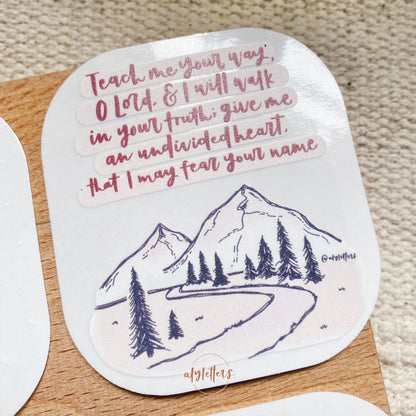 Teach me your way,
O Lord, & I will walk
in your truth; give me
an undivided heart,
that I may fear your name
@alyletters
alyletters